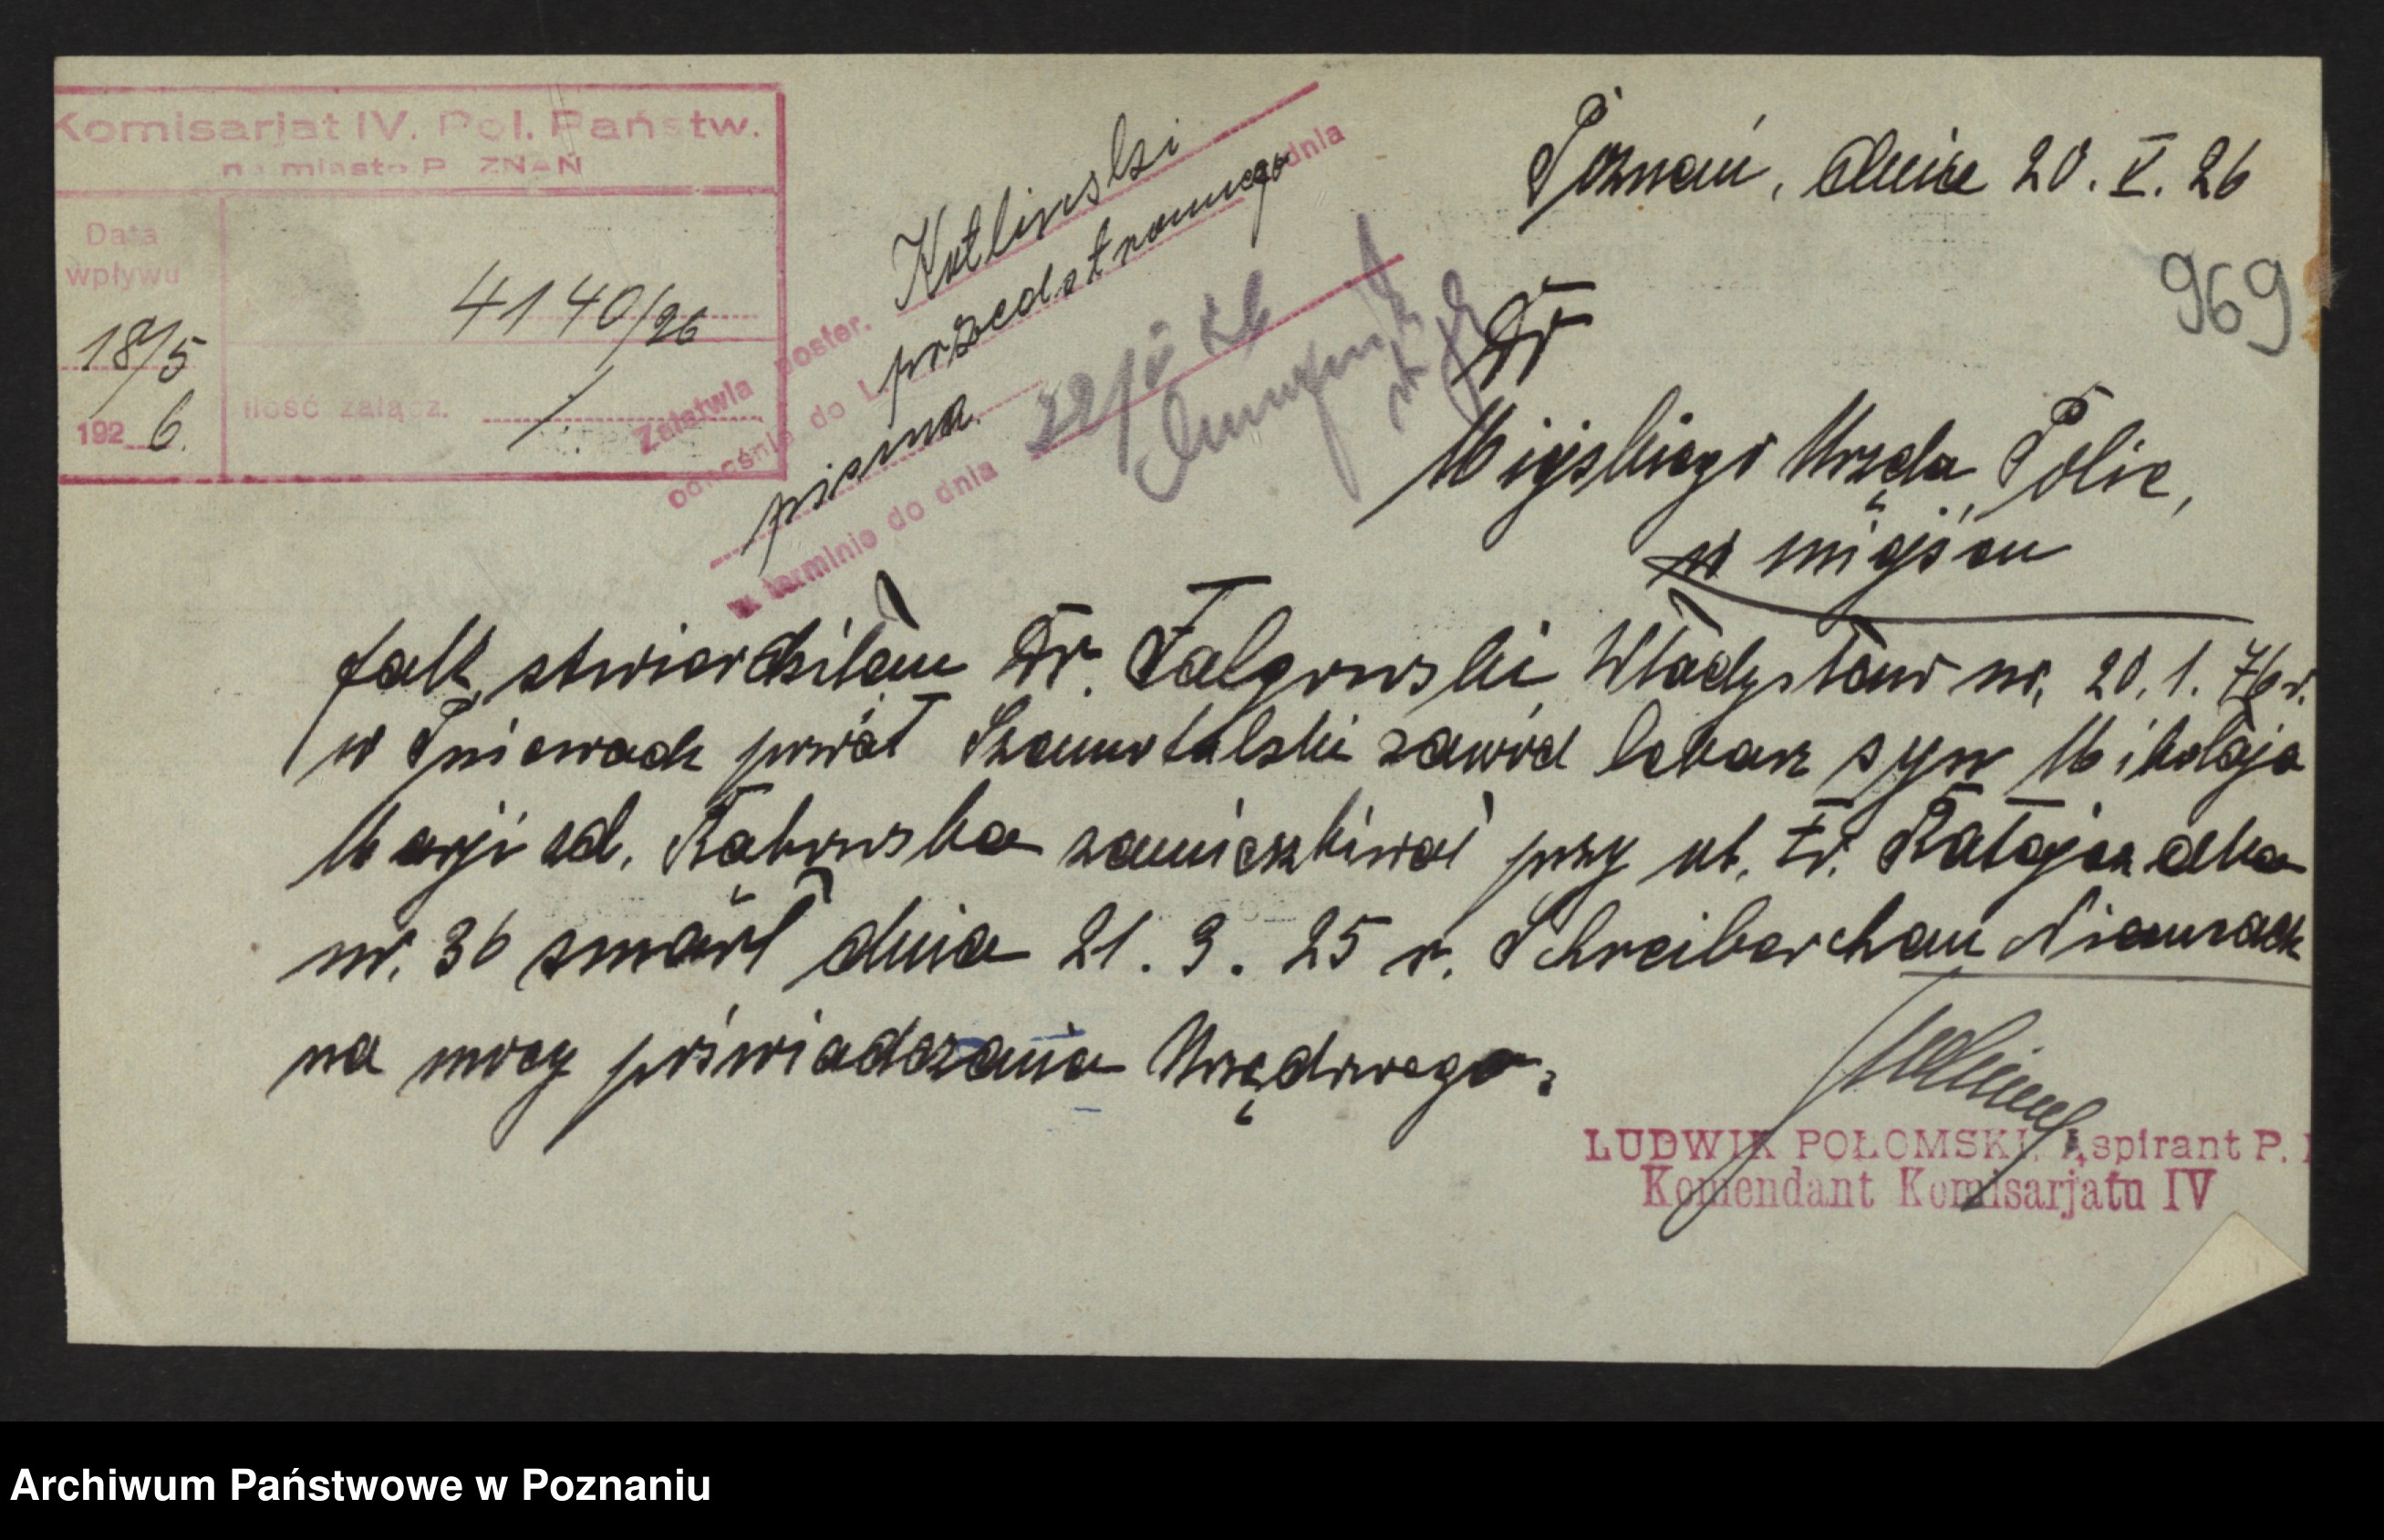 Komisarjat IV. Pol. Państw.
na miasto POZNAŃ
Data
wpływu
18/5
192 6.
4140/26
Ilość załącz. /.
Załatwia poster. Kotlinski
odnośnie do L. przedstronnego dnia
pisma
w terminie do dnia 22/V 26
Poznań, dnia 20. V. 26
969
Dr
Miejskiego Urzędu Polic,
w miejscu
fakt, stwierdziłem Dr. Falgowski Władysław ur, 20. 1. 76 r.
w Pniewach powiat Szamotulski zawód lekarz syn Mikołaja
Marji zd. Rąkowska zamieszkiwał przy ul. Fr. Ratajczaka
nr. 36 zmarł dnia 21. 9. 25 r. Schreiberchau Niemczech
na mocy poświadczenia Urzędowego.
LUDWIK POŁOMSKI, Aspirant P.
Komendant Komisarjatu IV
Archiwum Państwowe w Poznaniu